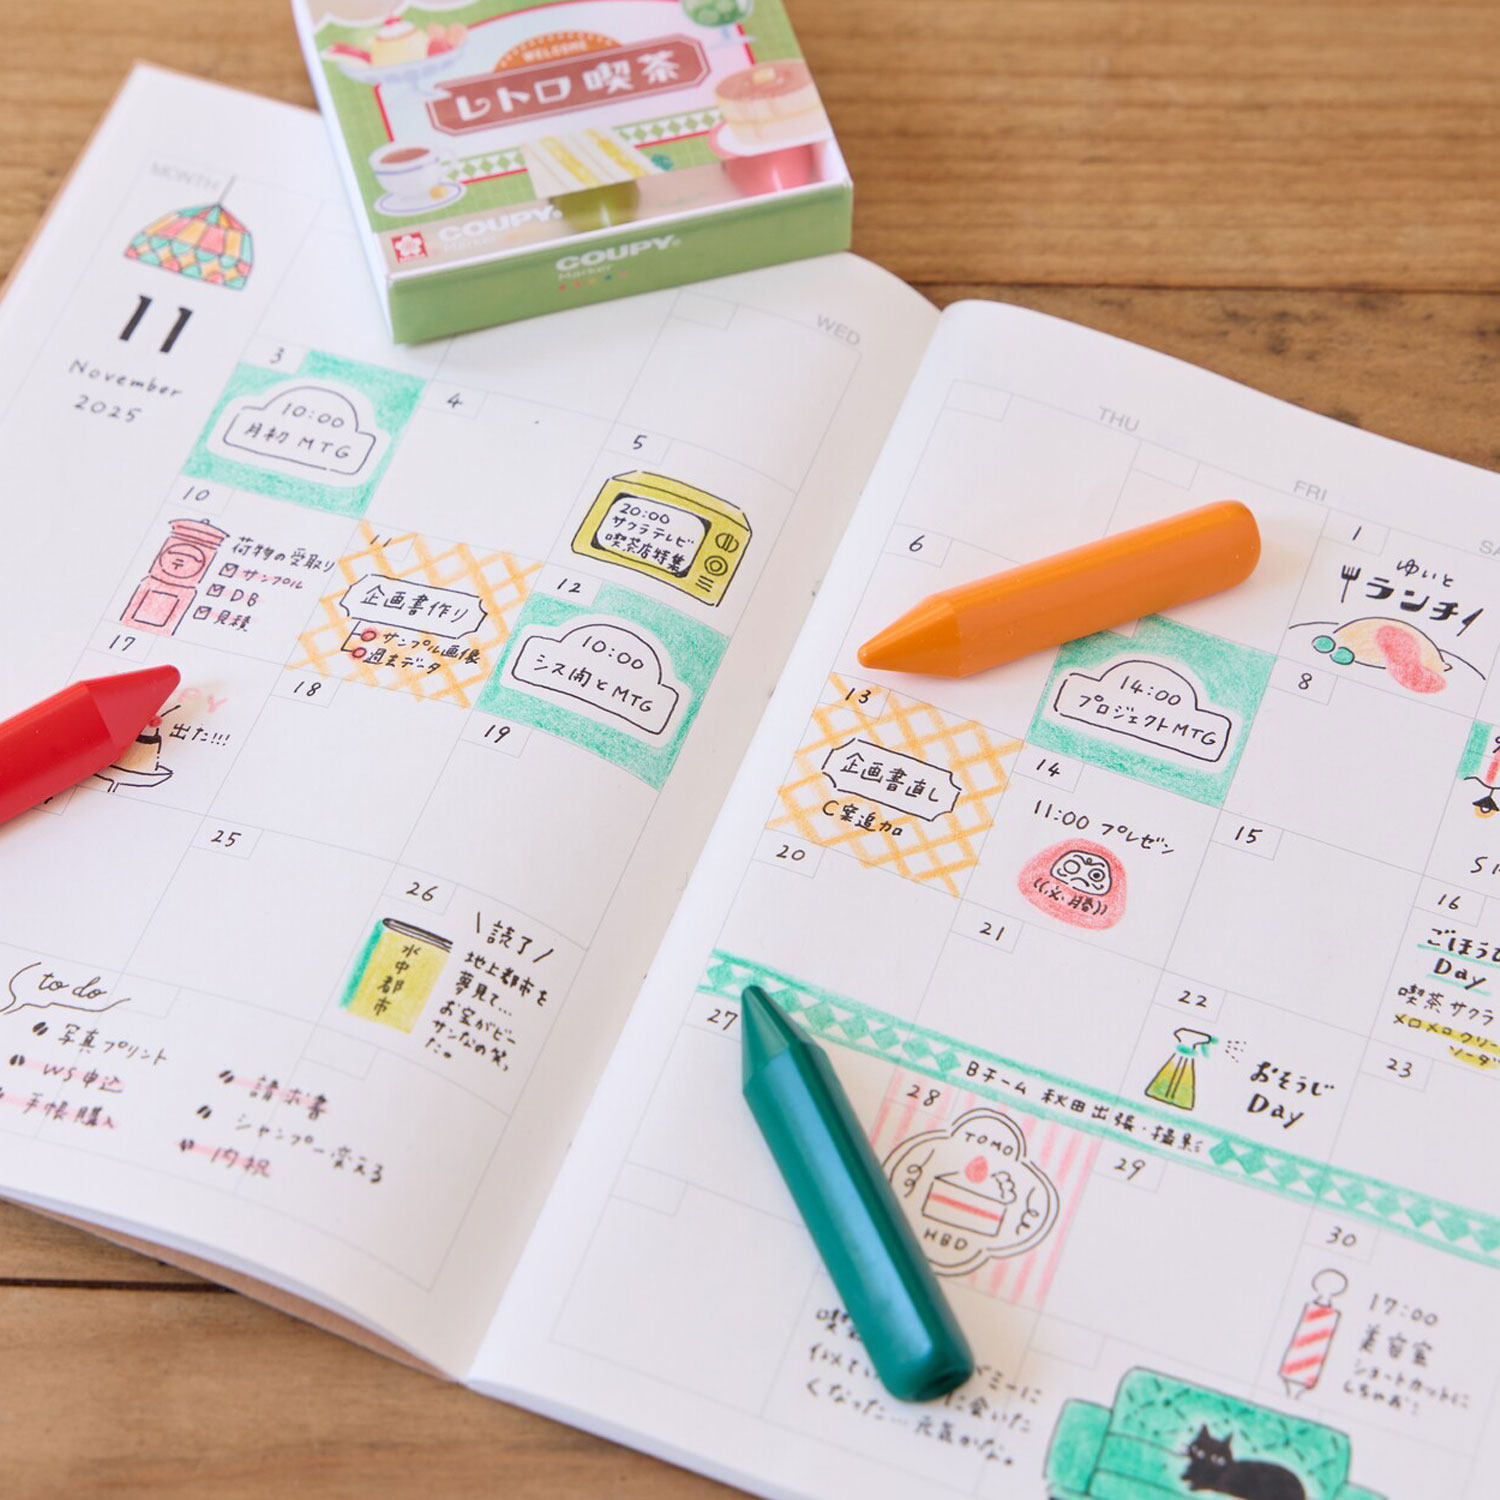 WELCOME
レトロ喫茶
COUPY
Marker
COUPY
Marker
MONTH
11
November
2025
WED
3
10:00
月初MTG
4
5
20:00
サクラテレビ
喫茶店特集
10
荷物の受取り
サンプル
DB
見積
11
企画書作り
サンプル画像
過去データ
12
10:00
シス開とMTG
17
出た!!!
18
19
25
26
水中都市
読了
地上都市を
夢見て…
お宝がビー
サンなの笑。
だ。
to do
写真プリント
WS申込
手帳購入
請求書
シャンプー変える
内祝
THU
FRI
SA
1
ゆいと
ランチ
6
14:00
プロジェクトMTG
8
13
企画書直し
C案追加
14
11:00 プレゼン
必勝
15
16
ごほうび
Day
喫茶サクラ
メロメロクリー
ソーダ
20
21
22
おそうじ
Day
23
Bチーム 秋田出張・撮影
27
28
TOMO
HBD
29
30
17:00
美容室
ショートカットに
しちゃお!
喫
似てい
ミーに
くなった…
に会いた
元気かな。